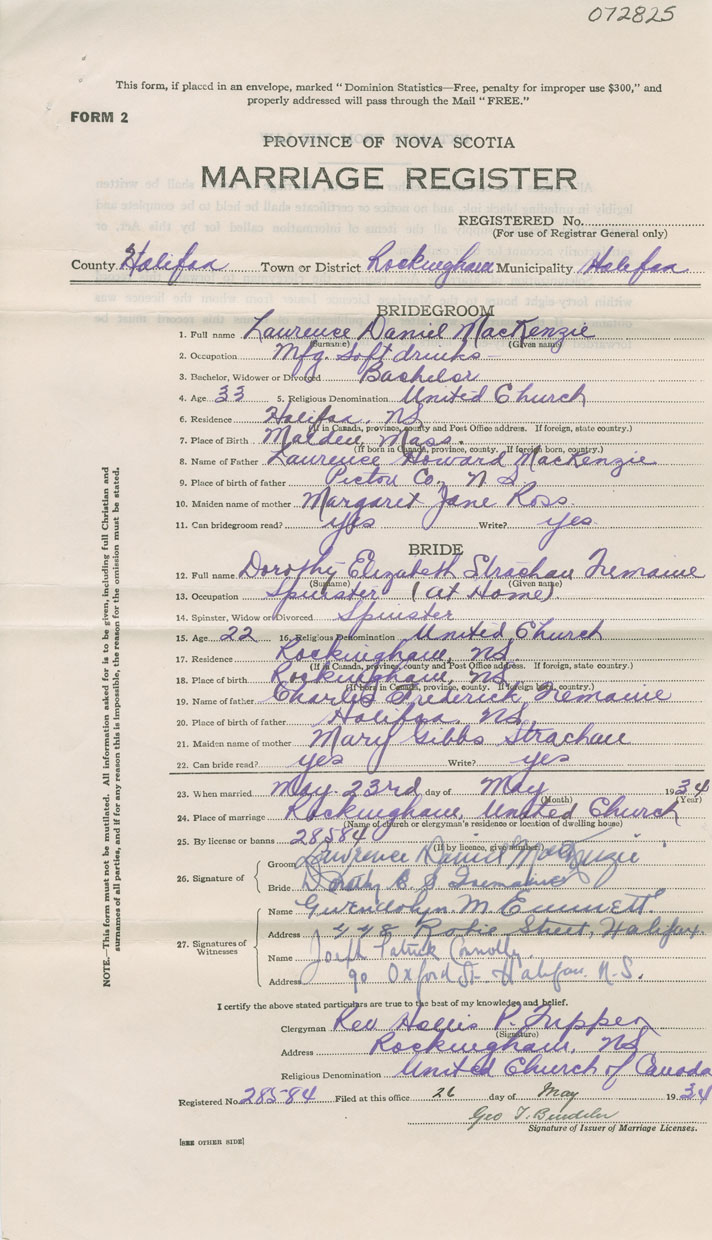 072825
This form, if placed in an envelope, marked "Dominion Statistics—Free, penalty for improper use $300," and
properly addressed will pass through the Mail "FREE."
FORM 2
PROVINCE OF NOVA SCOTIA
MARRIAGE REGISTER
REGISTERED No.
(For use of Registrar General only)
County Halifax Town or District Rockingham Municipality Halifax
BRIDEGROOM
1. Full name Laurence Daniel MacKenzie
(Surname) (Given name)
2. Occupation Mfg. Soft drinks
3. Bachelor, Widower or Divorced Bachelor
4. Age 33 5. Religious Denomination United Church
6. Residence Halifax, NS
(If in Canada, province, county and Post Office address. If foreign, state country.)
7. Place of Birth Malden Mass.
(If born in Canada, province, county. If foreign born, country.)
8. Name of Father Laurence Howard MacKenzie
9. Place of birth of father Pictou Co., N S
10. Maiden name of mother Margaret Jane Ross
11. Can bridegroom read? yes Write? yes
BRIDE
12. Full name Dorothy Elizabeth Strachan Tremaine
(Surname) (Given name)
13. Occupation Spinster (at Home)
14. Spinster, Widow or Divorced Spinster
15. Age 22 16. Religious Denomination United Church
17. Residence Rockingham, NS
(If in Canada, province, county and Post Office address. If foreign, state country.)
18. Place of birth Rockingham, NS
(If born in Canada, province, county. If foreign born, country.)
19. Name of father Charles Frederick Tremaine
20. Place of birth of father Halifax, NS
21. Maiden name of mother Mary Gibbs Strachan
22. Can bride read? yes Write? yes
23. When married May 23rd day of May 1934
(Month) (Year)
24. Place of marriage Rockingham, United Church
(Name of church or clergyman's residence or location of dwelling house)
25. By license or banns 28584
(If by licence, give number)
26. Signature of Groom Lawrence Daniel MacKenzie
Bride Dorothy E. S. Tremaine
27. Signatures of Witnesses
Name Gwendolyn M. Emmett
Address 448 Robie Street, Halifax.
Name Joseph Patrick Connolly
Address 90 Oxford St. Halifax. N.S.
I certify the above stated particulars are true to the best of my knowledge and belief.
Clergyman Rev Hollis P.
(Signature)
Address Rockingham, NS
Religious Denomination United Church of Canada
Registered No. 28584 Filed at this office 26 day of May 1934
Geo T.
Signature of Issuer of Marriage Licenses.
[SEE OTHER SIDE]
NOTE.—This form must not be mutilated. All information asked for is to be given, including full Christian and
surnames of all parties, and if for any reason this is impossible, the reason for the omission must be stated.